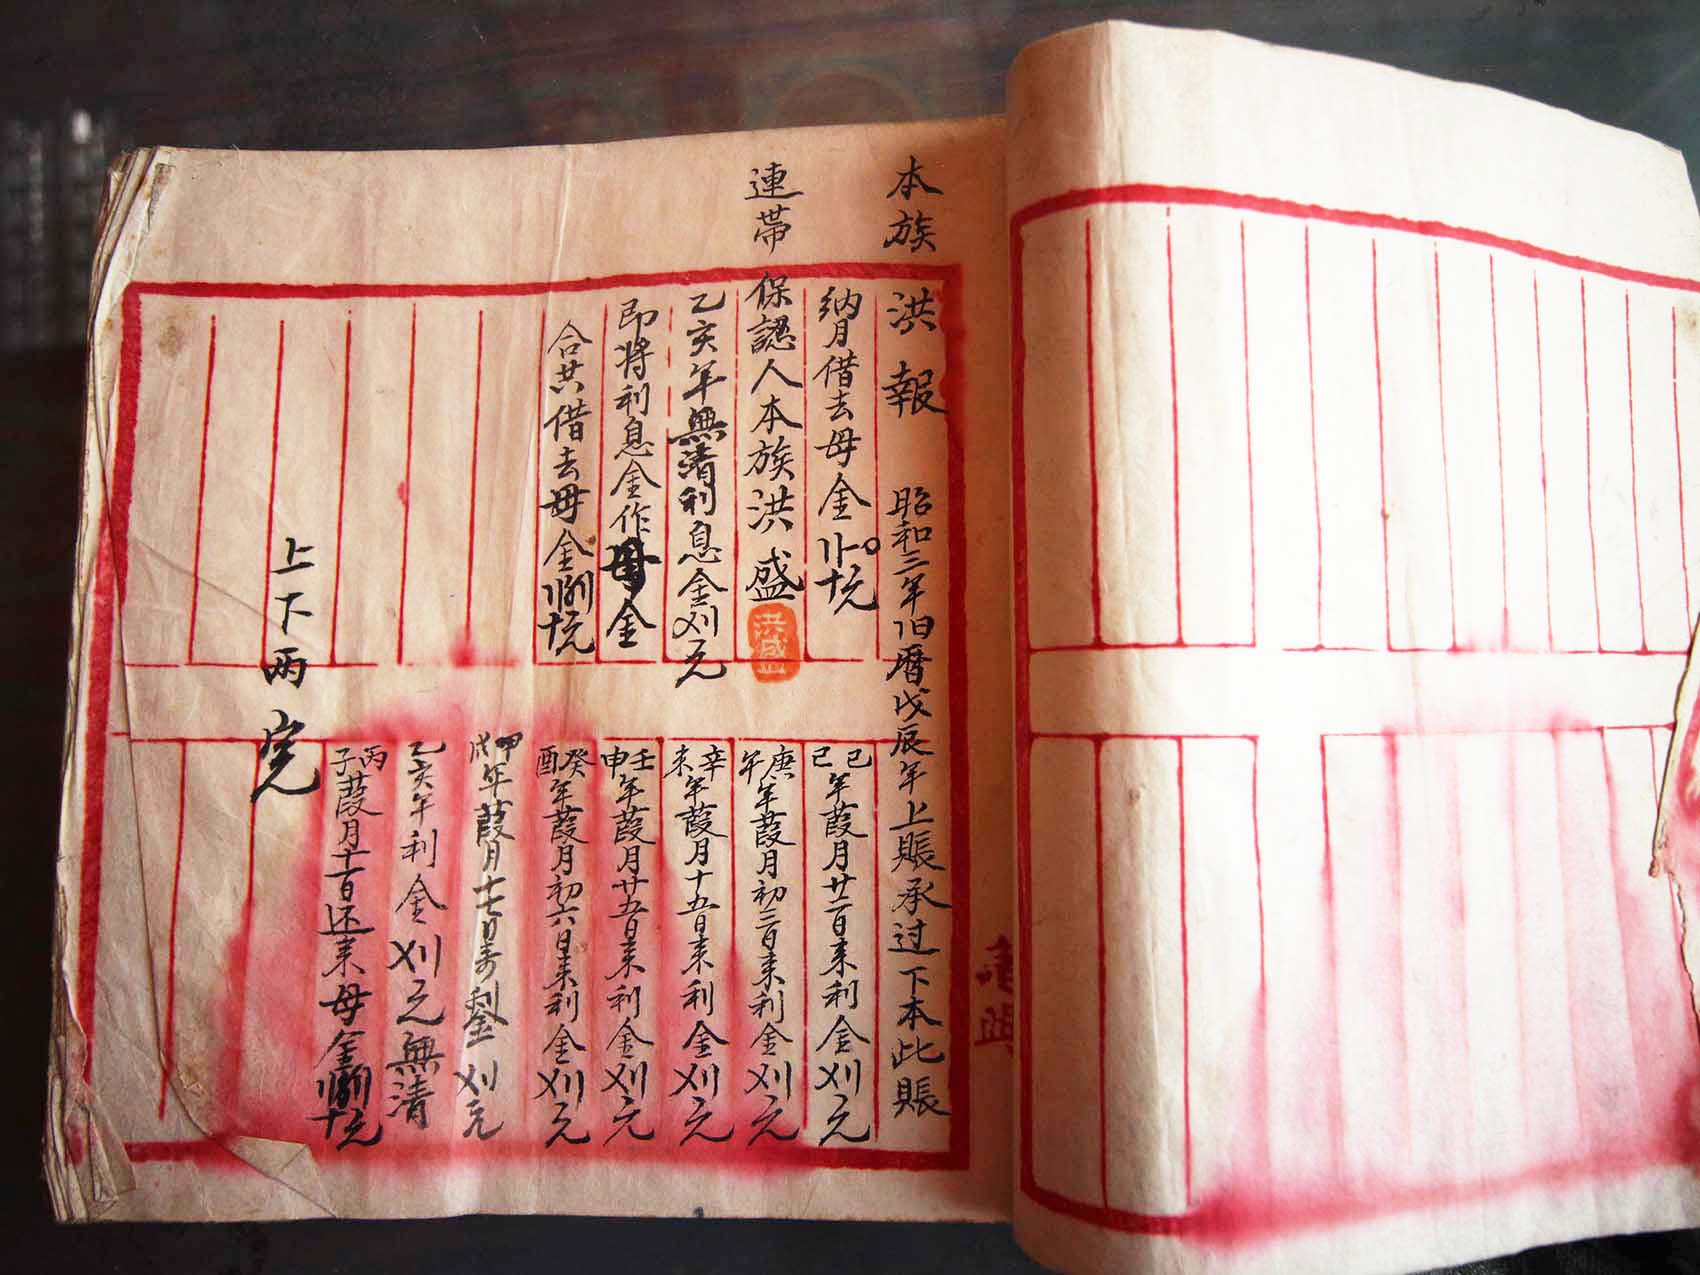 本族 洪報 昭和三年旧曆戊辰年上賬承过下本此賬
納月借去母金〢十元
連帶保認人本族洪盛
洪盛
乙亥年無清利息金〤〢元
即將利息金作母金
合共借去母金
己巳年葭月廿二日来利金〤〢元
庚午年葭月初三日来利金〤〢元
辛未年葭月十五日来利金〤〢元
壬申年葭月廿五日来利金〤〢元
癸酉年葭月初六日来利金〤〢元
甲戌年葭月十七日来利金〤〢元
乙亥年利金〤〢元無清
丙子葭月十一日还来母金
上下两完